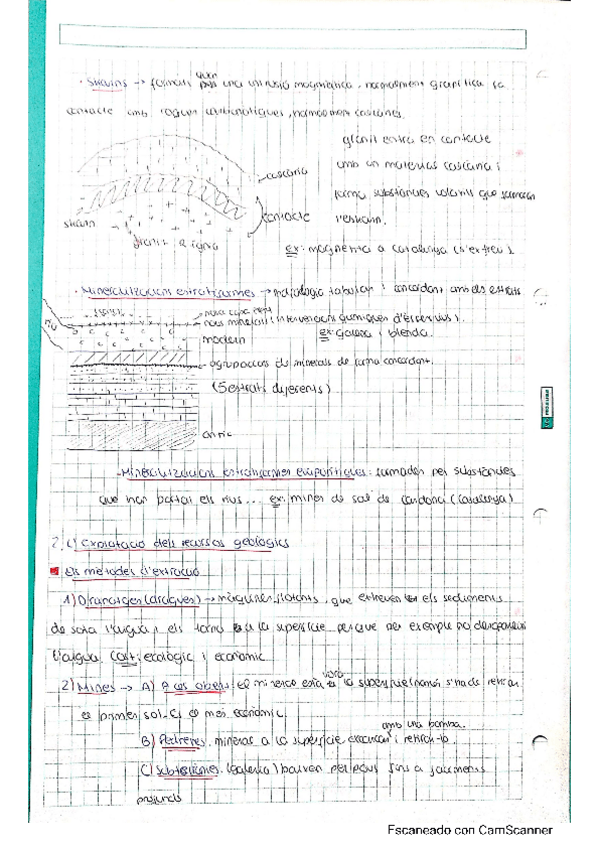 · Skarns → formats quan una intrusió magmàtica, normalment granítica fa
contacte amb roques carbonàtiques, normalment calcàries.
granit entra en contacte
amb un material calcària i
forma substàncies volàtils que formaran
l'eskarn.
ex: magnetita a Catalunya (s'extreu)
calcària
contacte
skarn
granit
· Mineralitzacions estratiformes → morfologia tabular i concordant amb els estrats
nova capa
nous minerals (intervenen químiques d'esser vius).
ex: galena i blenda.
modern
agrupacions de minerals de forma concordant.
(5 estrats diferents)
antic
- Mineralitzacions estratiformes evaporítiques: formades per substàncies
que han portat els rius... ex: mines de sal de Cardona (Catalunya)
2. c) Explotació dels recursos geològics
Els mètodes d'extracció
1) Dragatges (dragues) → màquines flotants, que extreuen els sediments
de sota l'aigua i els torna a la superfície perquè per exemple no desapareixi
l'aigua. Cost: ecològic i econòmic
2) Mines → A) A cel obert: el mineral està a la superfície només s'ha de retirar
el primer sòl. És el més econòmic.
amb una bomba.
B) Pedreres. minerals a la superfície excavar i retirar-lo.
C) Subterrànies. (galeria) baixen per pous fins a jaciments
profunds
Escaneado con CamScanner